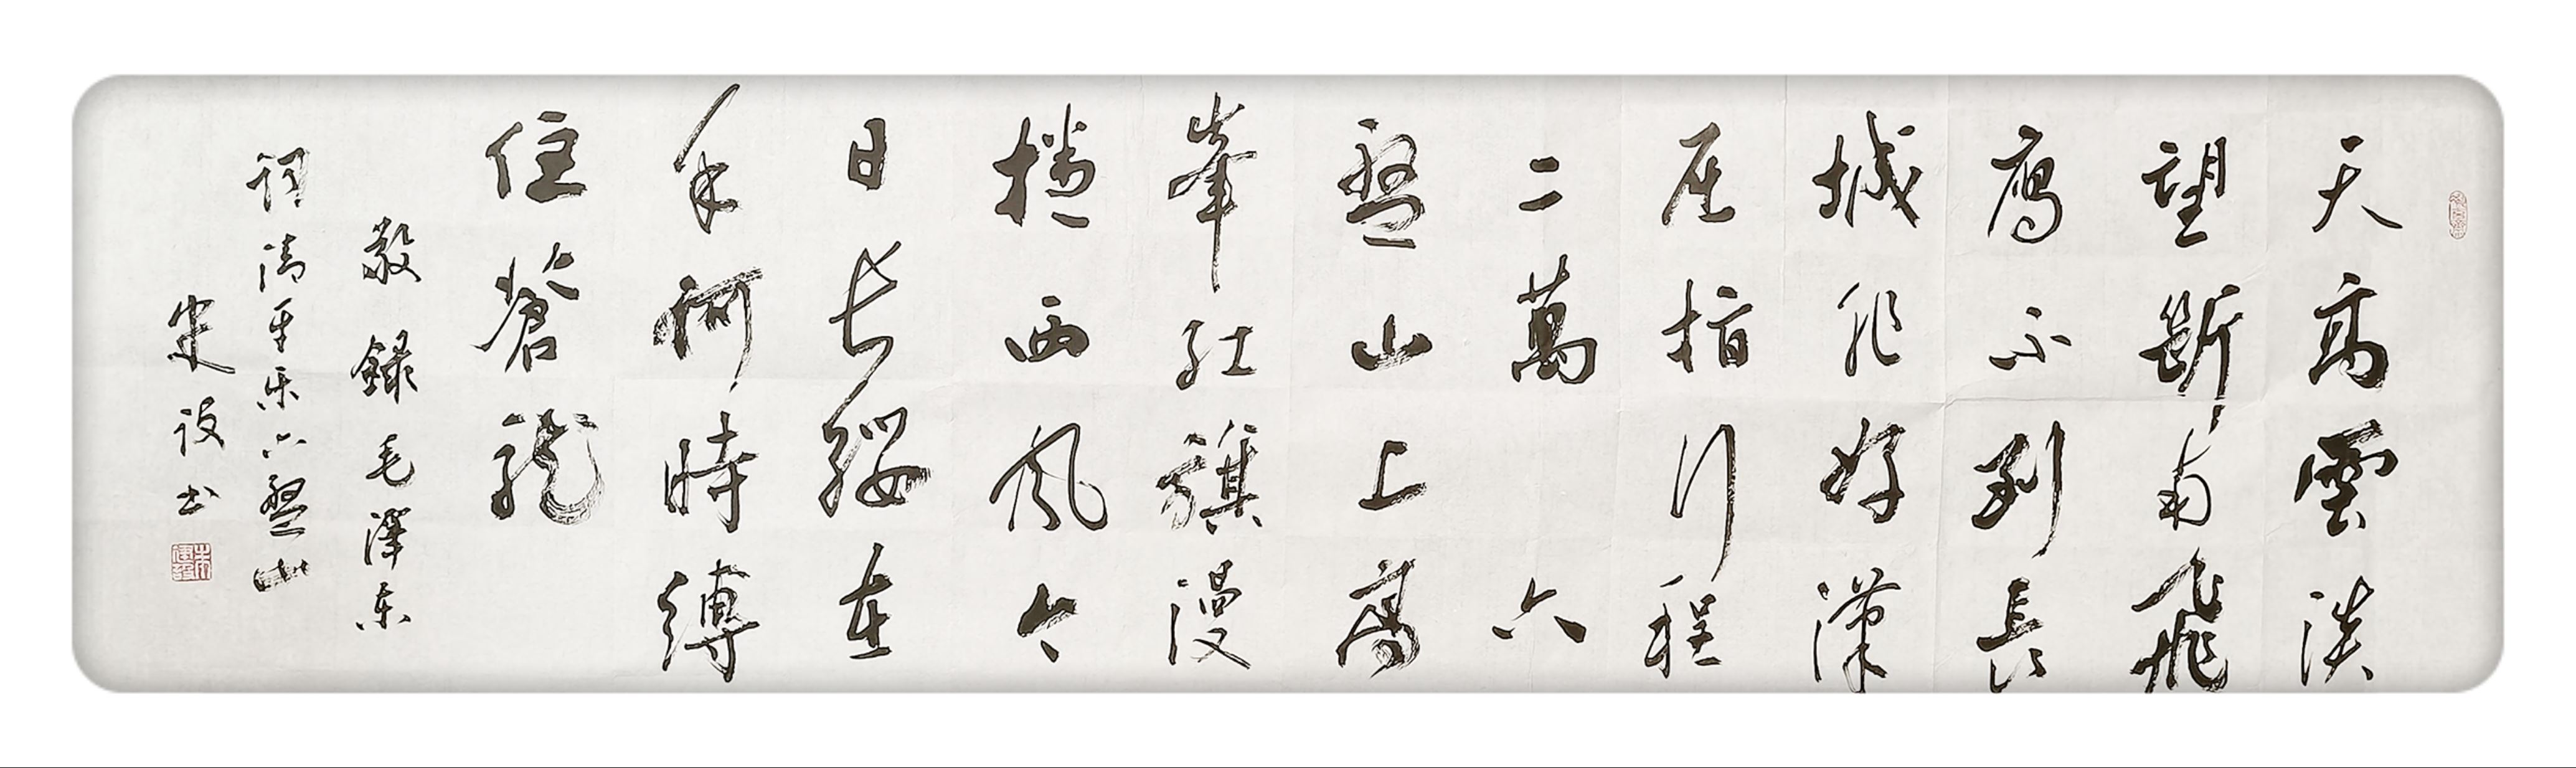 天高雲淡
望斷南飛
鴈不到長
城非好漢
屈指行程
二萬六
盤山上高
峯紅旗漫
捲西風今
日長纓在
手何時縛
住蒼龍
敬錄毛澤东
词清平乐六盤山
设书